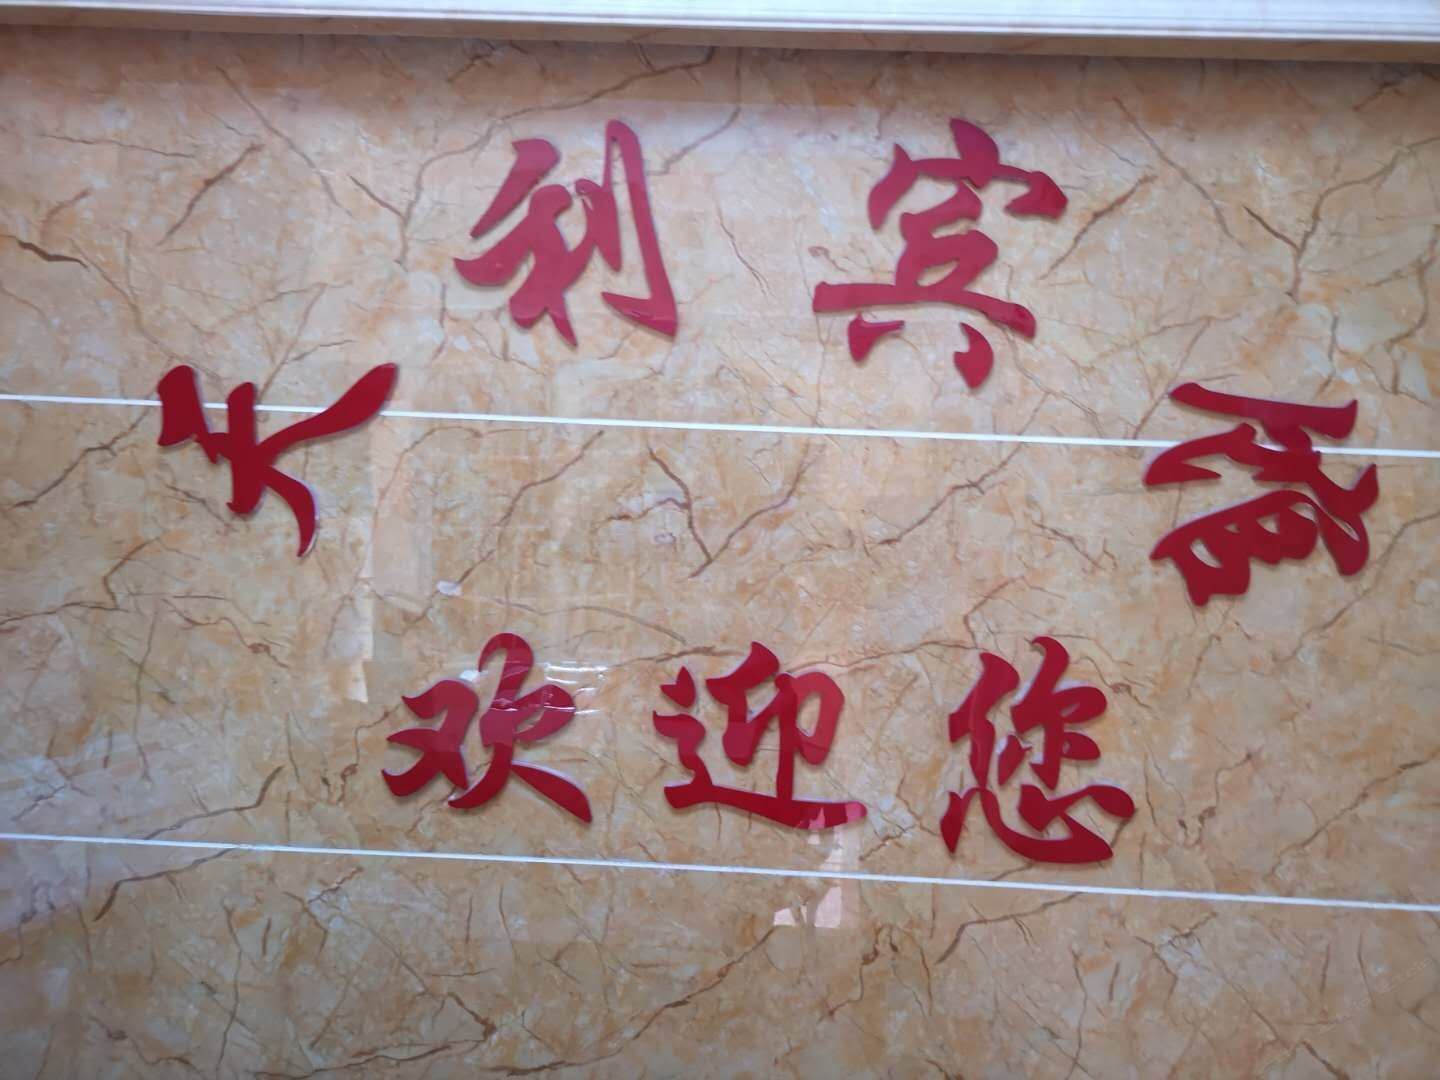 天利宾馆
欢迎您